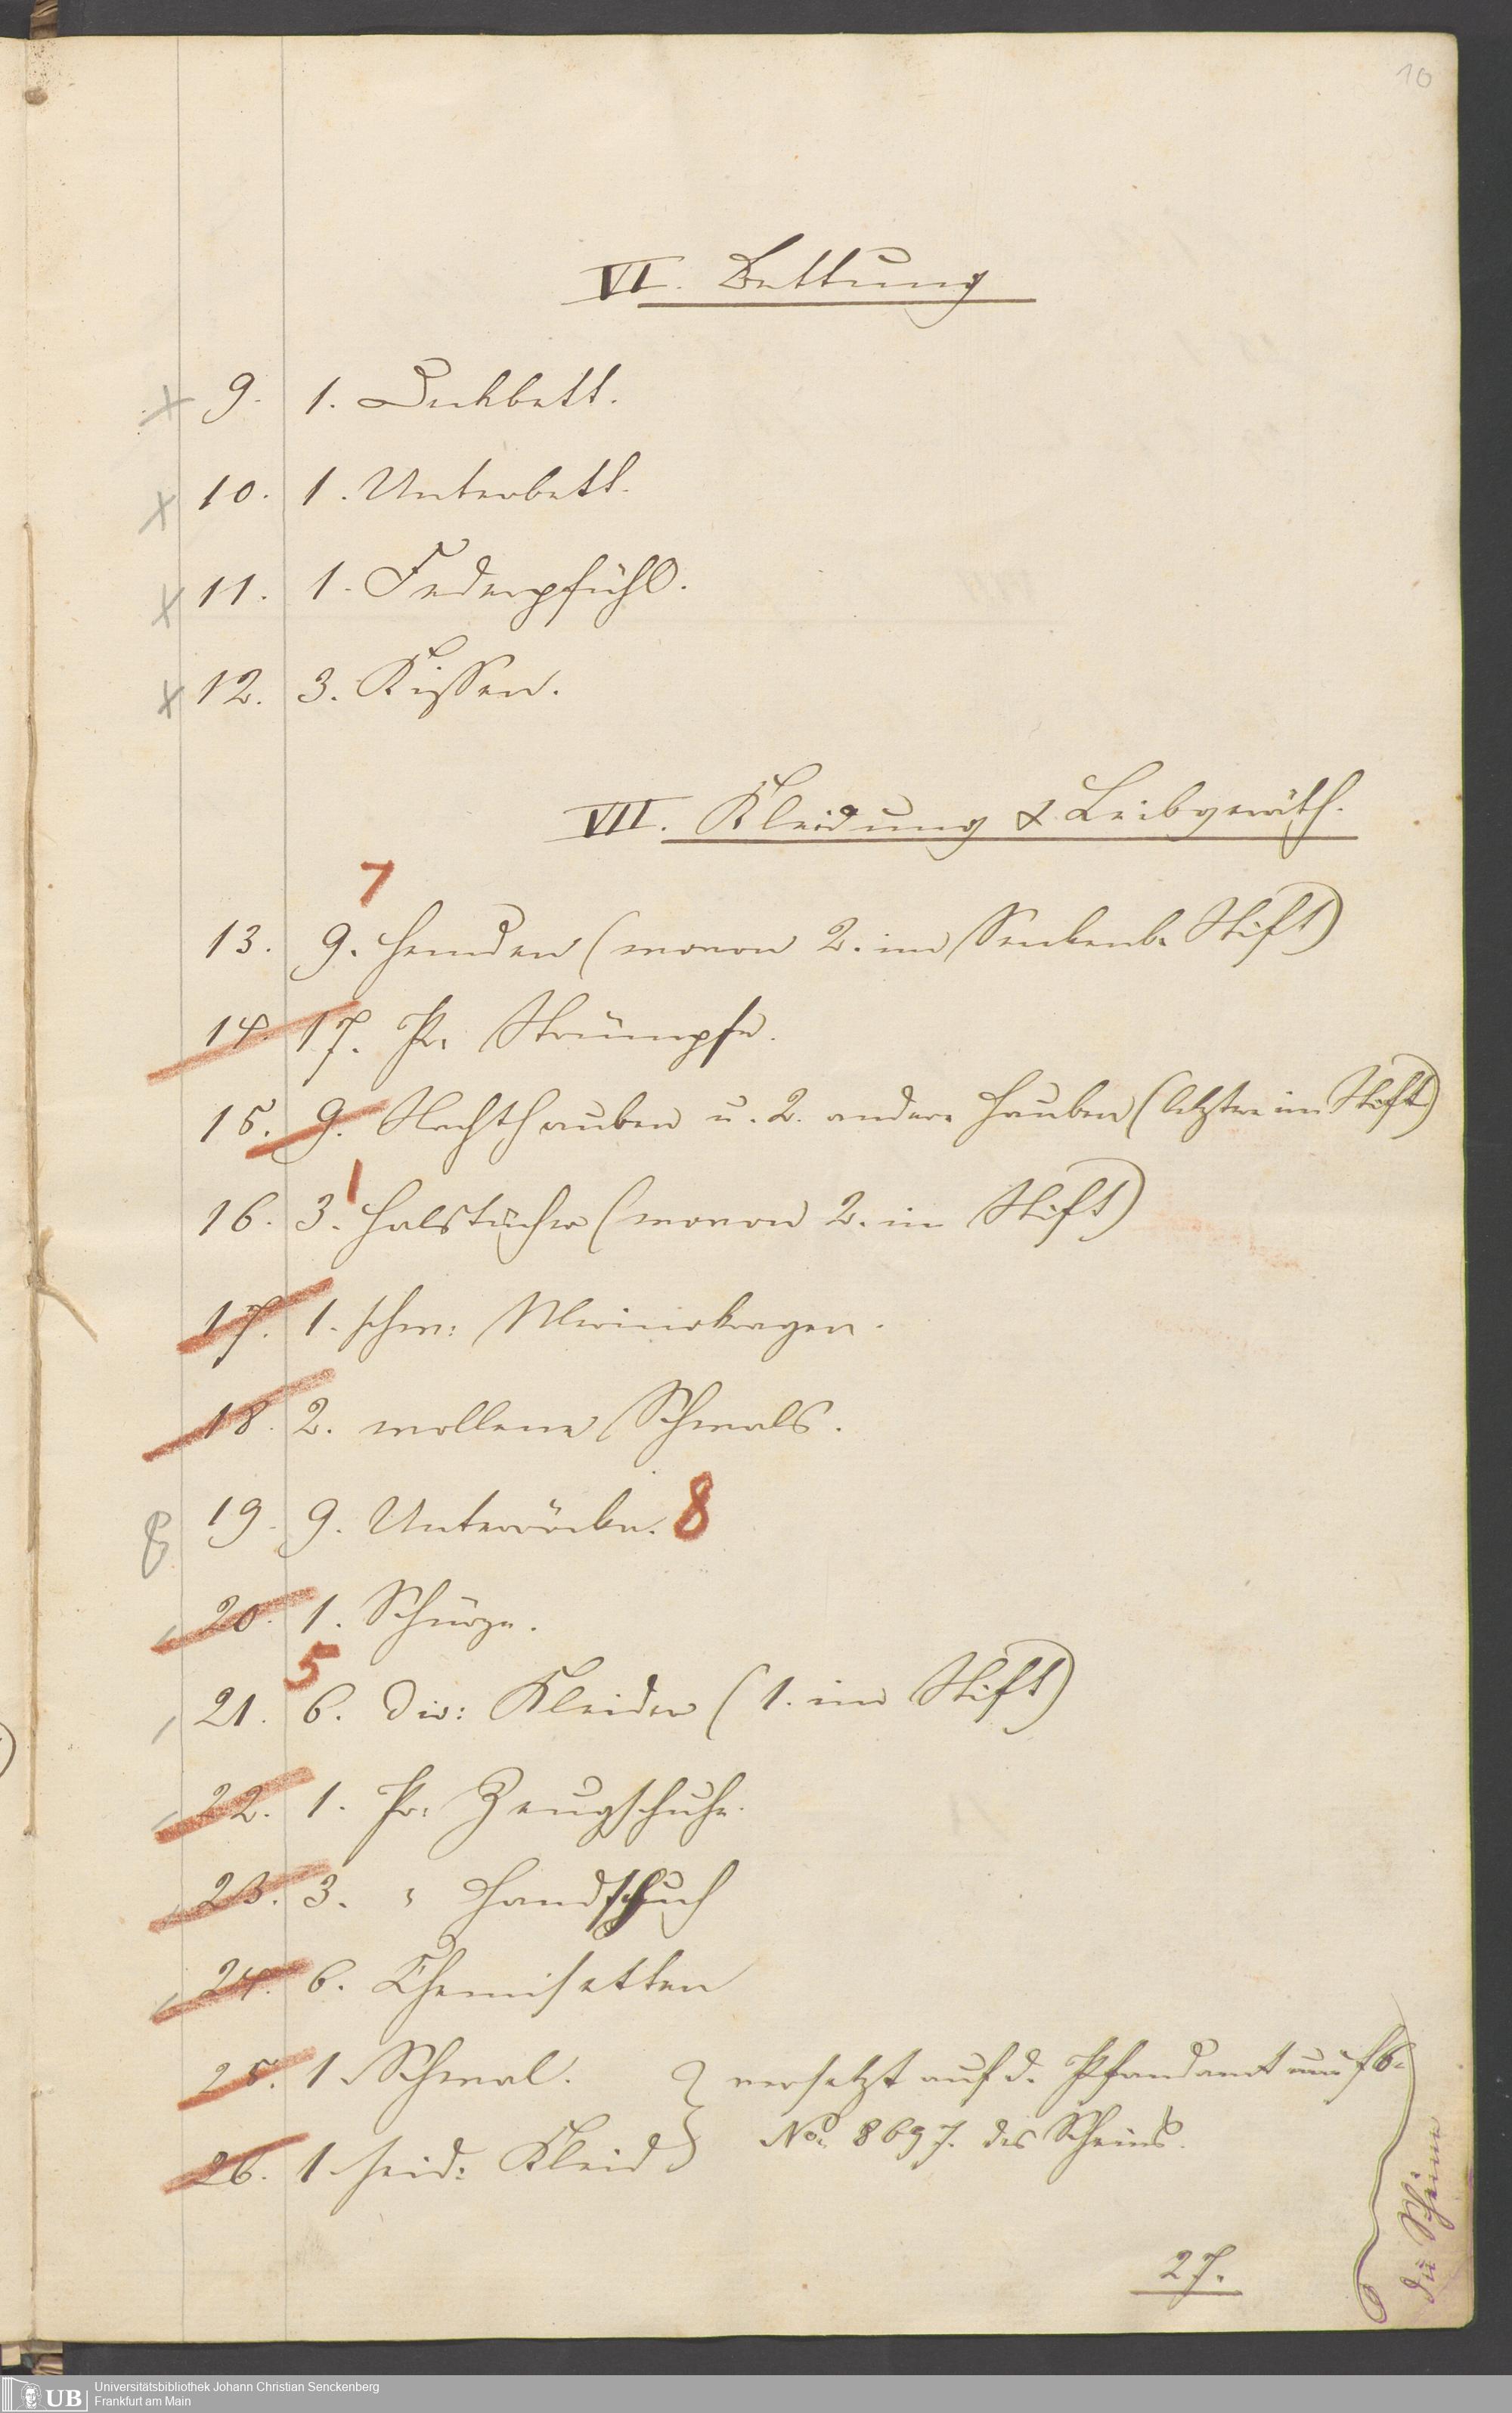 10
VI. Bettung
9. 1. Deckbett.
10. 1. Unterbett.
11. 1. Federpfühl.
12. 3. Kissen.
VII. Kleidung & Leibgeräth.
7
13. 9. Hemden (wovon 2. im Senkenb. Stift)
14. 17. Pr. Strümpfe.
15. 9. Nachthauben u. 2. andere Hauben (letztere im Stift)
1
16. 3. Halstücher (wovon 2. im Stift)
17. 1. schw: Merinokragen.
18. 2. wollene Schwals.
19. 9. Unterröcke. 8
20. 1. Schürze.
5
21. 6. div: Kleider (1. im Stift)
22. 1. Pr: Zeugschuhe.
23. 3. " Handschuh
24. 6. Chemisetten
25. 1. Schwal. } versetzt auf d. Pfandamt
26. 1. seid: Kleid } No. 8697. des Scheins.
27.
die Scheine
Universitätsbibliothek Johann Christian Senckenberg
Frankfurt am Main
UB